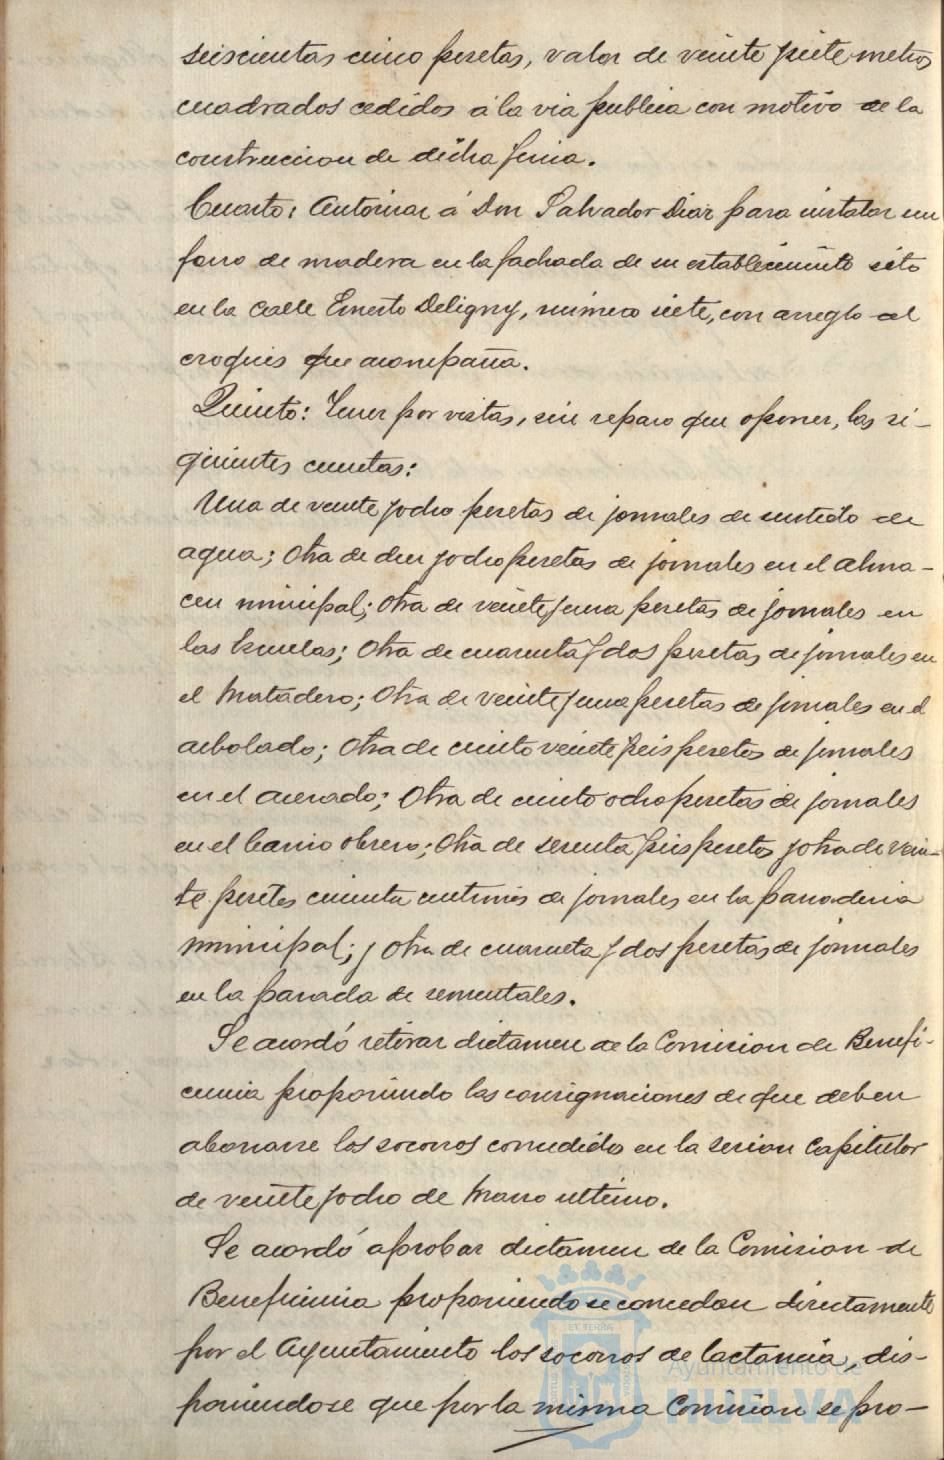 seiscientas cinco pesetas, valor de veinte y siete metros
cuadrados cedidos á la via publica con motivo de la
construccion de dicha finca.
Cuarto: Autorizar á Don Salvador Diaz para instalar un
forro de madera en la fachada de su establecimiento sito
en la calle Ernesto Deligny, número siete, con arreglo al
croquis que acompaña.
Quinto: Tener por vistas, sin reparo que oponer, las si-
guientes cuentas:
Una de veinte y ocho pesetas de jornales de surtido de
agua; Otra de diez y ocho pesetas de jornales en el alma-
cen municipal; Otra de veinte y una pesetas de jornales en
las Escuelas; Otra de cuarenta y dos pesetas de jornales en
el Matadero; Otra de veinte y una pesetas de jornales en el
arbolado; Otra de ciento veinte y seis pesetas de jornales
en el acerado; Otra de ciento ocho pesetas de jornales
en el barrio obrero; Otra de sesenta y seis pesetas y otra de vein-
te pesetas cincuenta centimos de jornales en la panaderia
municipal; y Otra de cuarenta y dos pesetas de jornales
en la parada de sementales.
Se acordó retirar dictamen de la Comision de Benefi-
cencia proponiendo las consignaciones de que deben
abonarse los socorros concedidos en la sesion Capitular
de veinte y ocho de Marzo ultimo.
Se acordó aprobar dictamen de la Comision de
Beneficencia proponiendo se concedan directamente
por el Ayuntamiento los socorros de lactancia, dis-
poniendose que por la misma Comision se pro-
ET TERRÆ
Ayuntamiento de
HUELVA